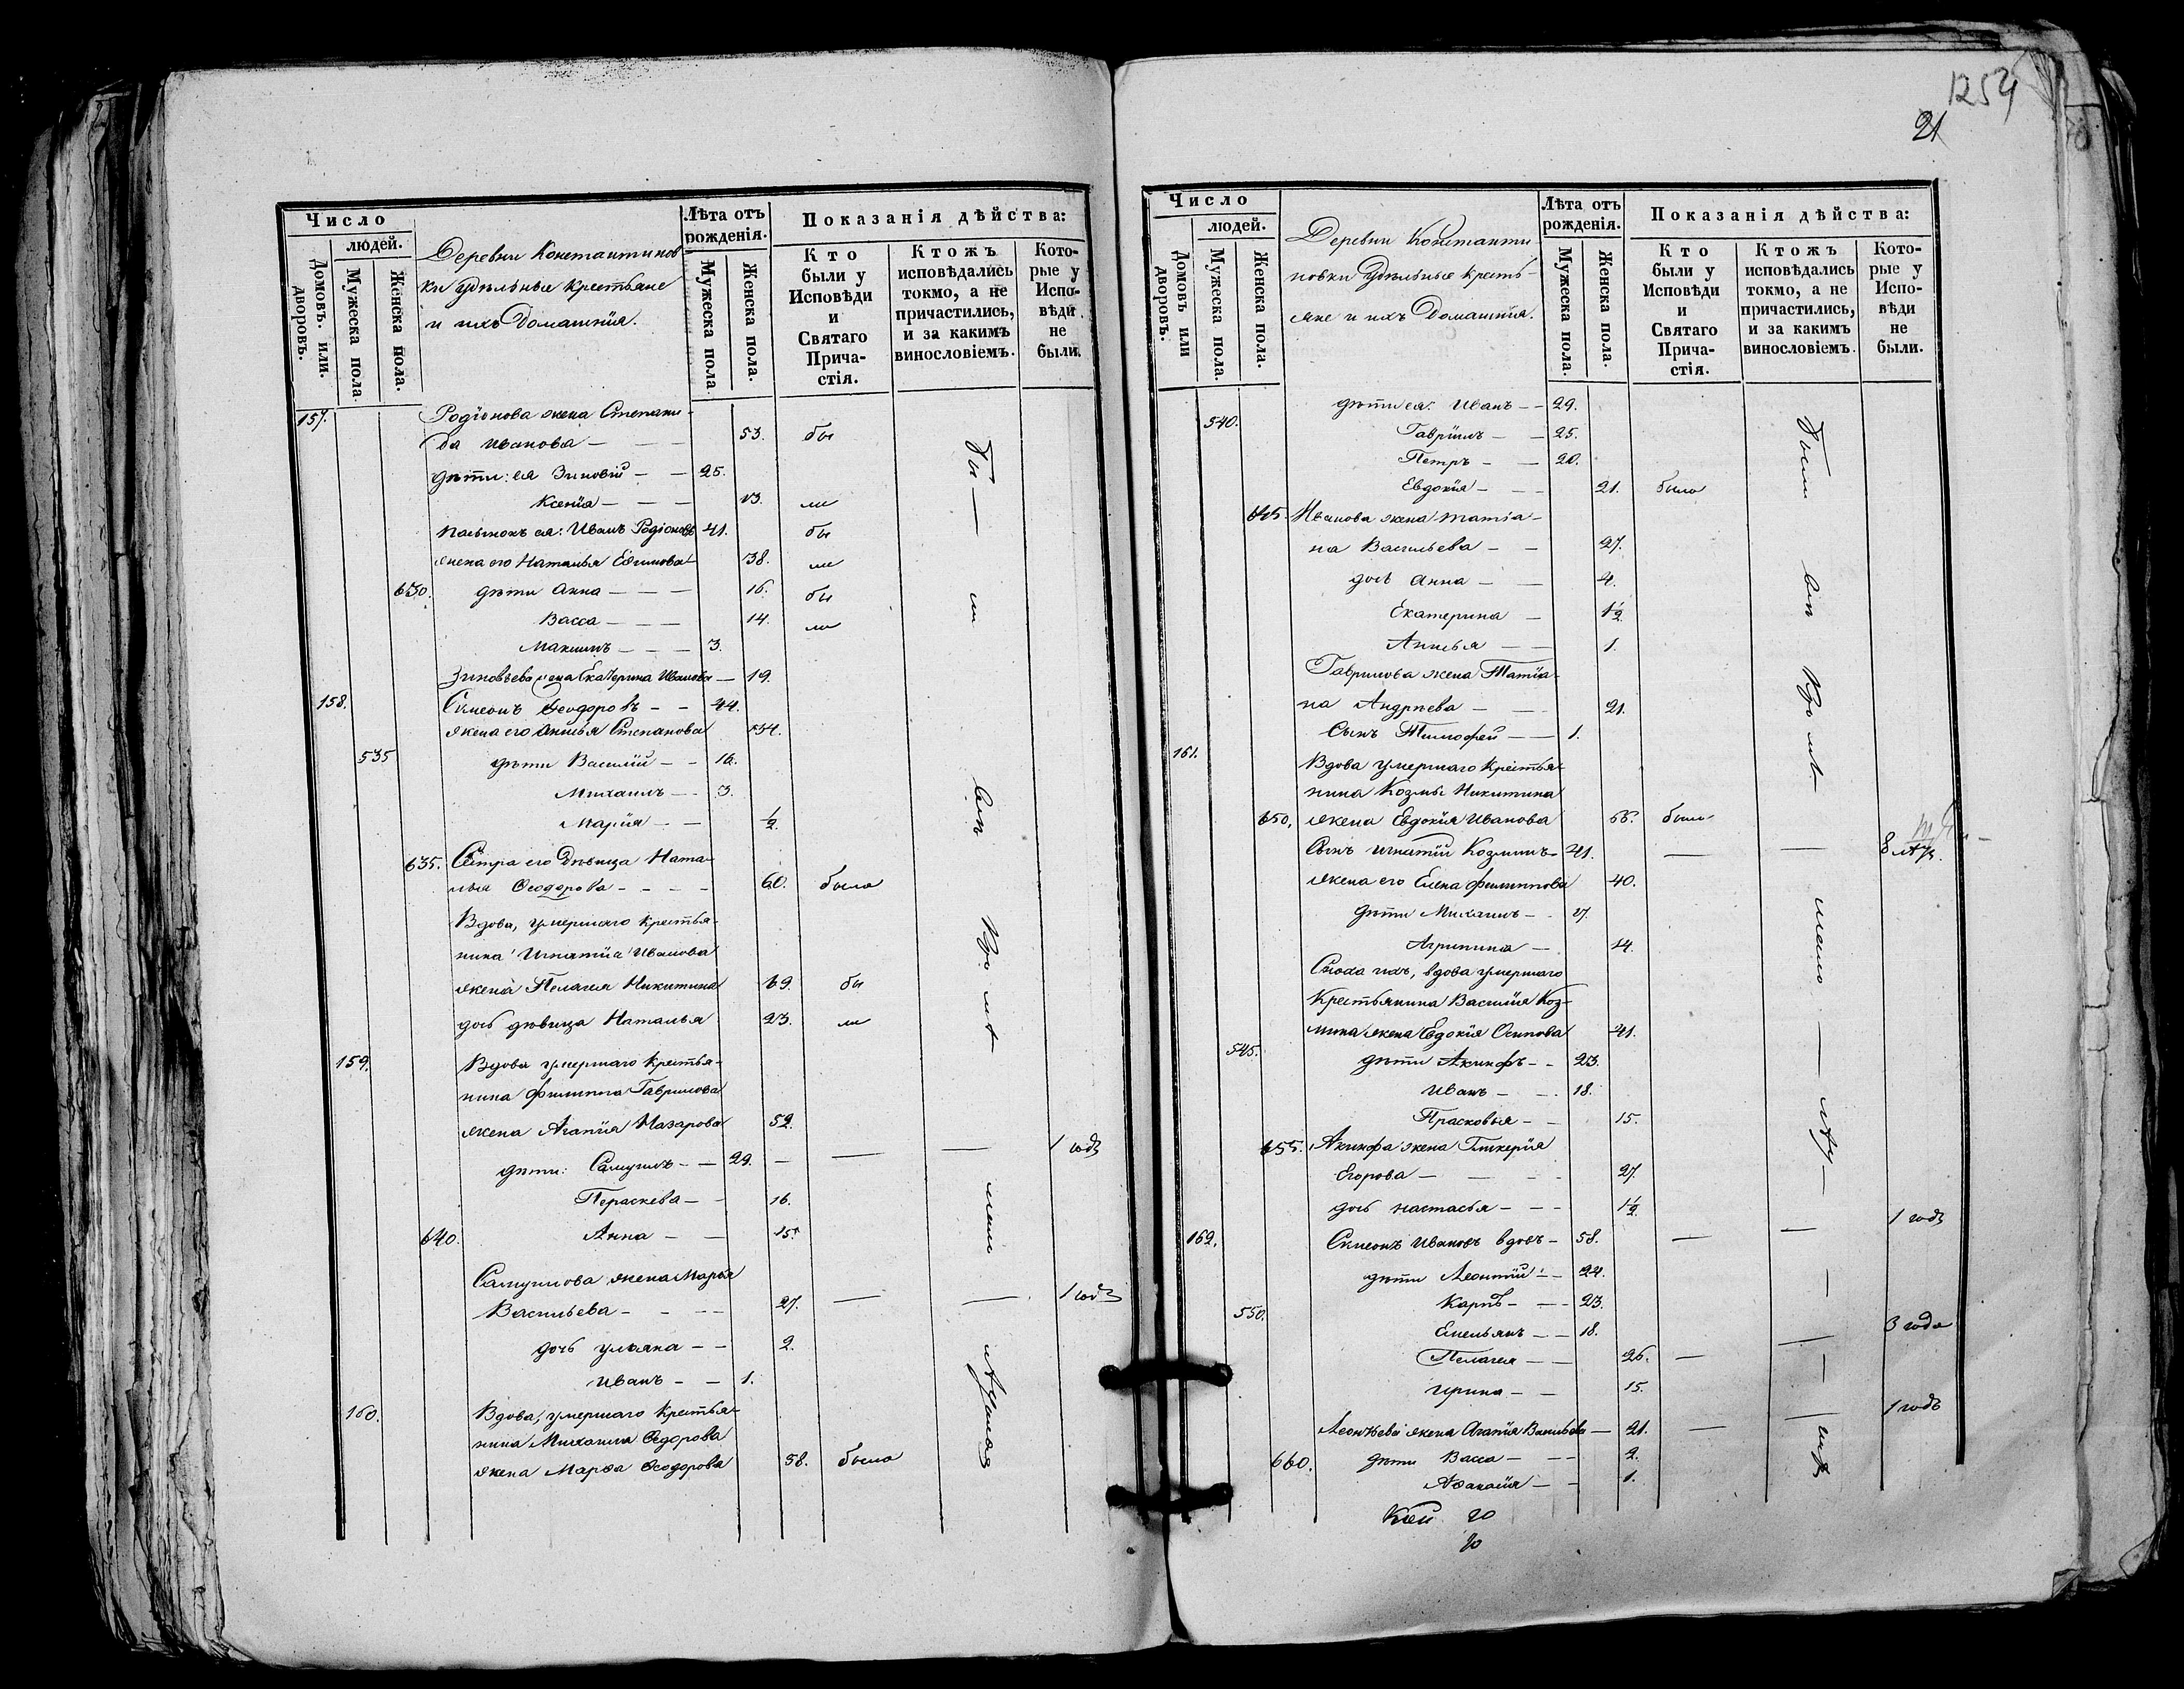 1254
21
Число
людей.
Домовъ или дворовъ.
Мужеска пола.
Женска пола.
Деревни Константинов
ки удѣльные крестьяне
и ихъ домашнія.
Лѣта отъ рожденія.
Мужеска пола
Женска пола.
Показанія дѣйства:
Кто были у Исповѣди и Святаго Прича-стія.
Ктожъ исповѣдались токмо, а не причастились, и за какимъ винословіемъ.
Кото-рые у Испо-вѣди не были.
157. Родіонова жена Степани-
да Иванова — 53. бы
дѣти: ея Зиновій — 25.
Ксенія — 13. ли
пасынокъ ея: Иванъ Родіоновъ 41. бы
жена его Наталья Ефимова 38. ли
630. дѣти Анна — 16. бы
Васса — 14. ли
Максимъ — 3.
Зиновьева жена Екатерина Иванова — 19.
158. Симеонъ Феодоровъ — 44.
жена его Анисья Степанова 34.
535 дѣти Василій — 16.
Михаилъ — 3.
Марія — 1/2.
635. Сестра его дѣвица Ната-
лья Ѳеодорова — 60. была
Вдова, умершаго крестья-
нина Игнатія Иванова
жена Пелагея Никитина 69. бы
дочь дѣвица Наталья 23. ли
159. Вдова умершаго крестья-
нина Филиппа Гаврилова
жена Агапія Назарова 52.
дѣти: Самуилъ — 29. — — — 1 годъ
Параскева — 16.
640. Анна — 15.
Самуилова жена Марья
Васильева — 27. — — 1 годъ
дочь Ульяна — 2.
Иванъ — 1.
160. Вдова, умершаго крестья-
нина Михаила Ѳедорова
жена Марѳа Ѳеодорова 58. была
Число
людей.
Домовъ или дворовъ.
Мужеска пола.
Женска пола.
Деревни Константи
новки удѣльные кресть-
яне и ихъ домашнія.
Лѣта отъ рожденія.
Мужеска пола.
Женска пола.
Показанія дѣйства:
Кто были у Исповѣди и Святаго Прича-стія.
Ктожъ исповѣдались токмо, а не причастились, и за какимъ винословіемъ.
Кото-рые у Испо-вѣди не были.
540. дѣти ея: Иванъ — 29.
Гавріилъ — 25.
Петръ — 20.
Евдокія — 21. была
645. Иванова жена Татіа-
на Васильева — 27.
дочь Анна — 4.
Екатерина — 1 1/2
Анисья — 1.
Гаврилова жена Татіа-
на Андреева — 21.
Сынъ Тимофей — 1.
161. Вдова умершаго крестья-
нина Козмы Никитина
650. жена Евдокія Иванова 66. была
Сынъ Игнатій Козминъ — 41. — — 8 лѣтъ.
жена его Елена Филиппова 40.
дѣти Михаилъ — 17.
Агрипина — 14.
Сноха ихъ, вдова умершаго
крестьянина Василія Коз-
мина жена Евдокія Осипова 41.
545. дѣти Акинфъ — 23.
Иванъ — 18.
Прасковья — 15.
655. Акинфа жена Гликерія
Егорова — 27.
дочь Настасья — 1 1/2.
162. Симеонъ Ивановъ вдовъ — 58. — — 1 годъ
дѣти Леонтій — 24.
550. Карпъ — 23.
Емельянъ — 18.
Пелагея — 26. — — 3 года
Ирина — 15.
Леонтьева жена Агапія Васильева — 21. — — 1 годъ
660. дѣти Васса — 2.
Аѳанасія — 1.